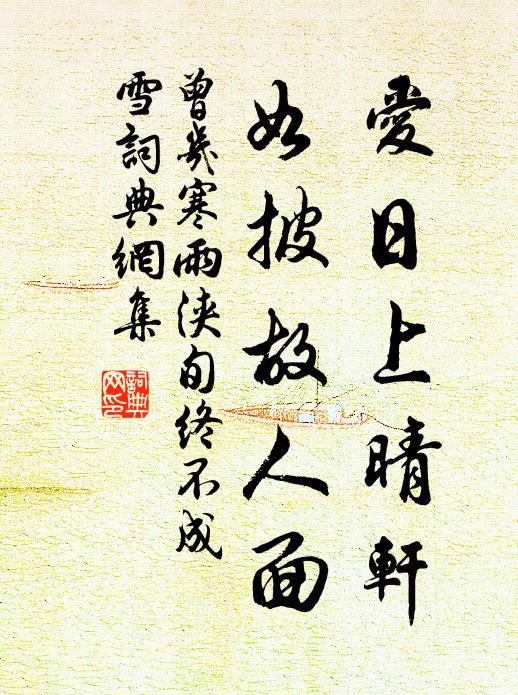 愛日上晴軒
如披故人面
曾幾寒雨浹旬終不成
雪詞典網集
詞典
網印